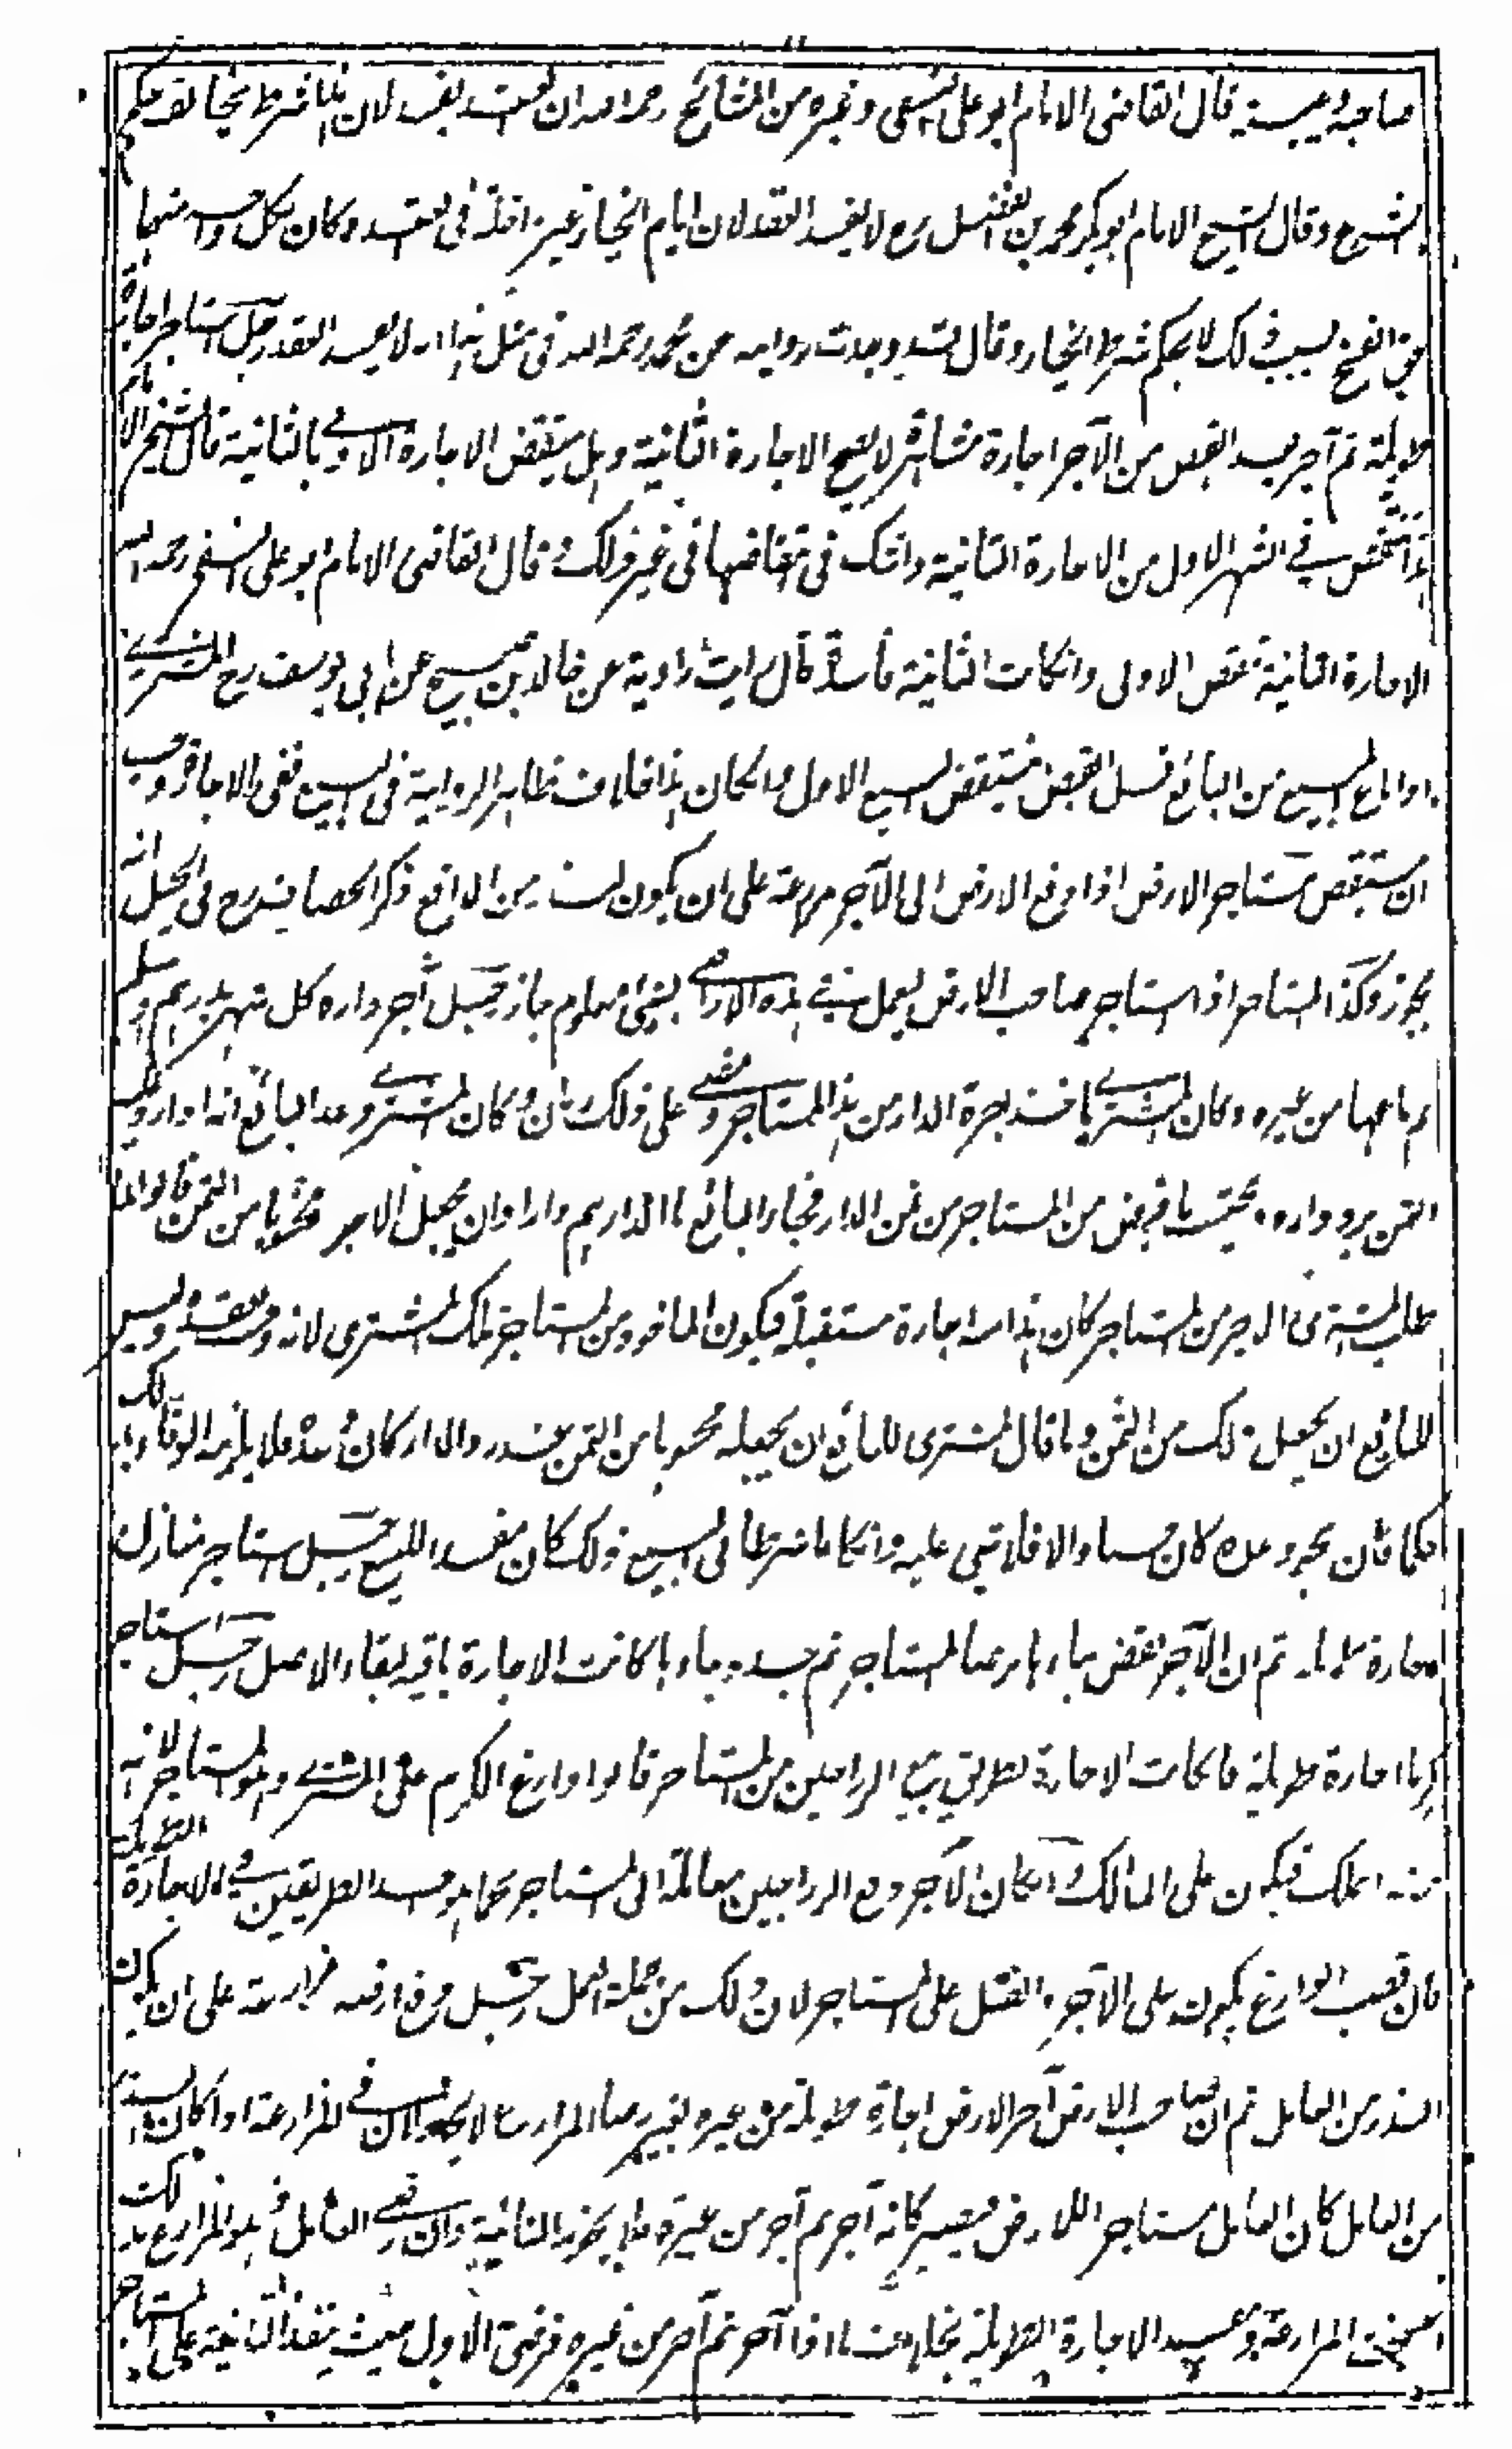 صاحبه وبينة قال القاضى الامام ابو على النسفى وغيره من المشائخ رحمه الله ان العقد يفسد لان هذا شرط يخالف حكم
الشرع وقال الشيخ الامام ابو بكر محمد بن الفضل رح لا يفسد العقد لان ايام الخيار غير داخلة فى العقد وكان لكل واحد منهما
حق الفسخ بسبب ذلك لا بحكم شرط الخيار وقال قد وجدت رواية عن محمد رحمه الله فى مثل هذا انه لا يفسد العقد رجل استاجر اجارة
طويلة ثم آجر بعد القبض من الآجر اجارة مشاهرة لا يصح الاجارة الثانية وهل ينتقض الاجارة الاولى بالثانية قال الشيخ الامام
هذا تنتقض فى الشهر الاول من الاجارة الثانية واشك فى انتقاضها فى غير ذلك وقال القاضى الامام ابو على النسفى رحمه الله
الاجارة الثانية تنقض الاولى وان كانت الثانية فاسدة قال رايت رواية عن خالد بن صبيح عن ابى يوسف رح المشترى
اذا باع المبيع من البائع قبل القبض ينتقض البيع الاول وان كان هذا خلاف ظاهر الرواية فى البيع ففى الاجارة وجب
ان ينتقض مستاجر الارض اذا دفع الارض الى الآجر مزارعة على ان يكون البذر من الدافع ذكر الخصاف رح فى الحيل انه
يجوز وكذا المستاجر اذا استاجر صاحب الارض ليعمل فى هذه الاراضى بشئ معلوم جاز رجل آجر داره كل شهر بدرهم وسلم
ثم باعها من غيره وكان المشترى ياخذ اجرة الدار من هذا المستاجر ومضى على ذلك زمان وكان المشترى وعد البائع انه اذا رد عليه
الثمن يرد داره ويحتسب ما قبض من المستاجر من ثمن الدار فجاء البائع بالدراهم واراد ان يجعل الاجر محسوبا من الثمن قالوا لما
طلب المشترى الاجر من المستاجر كان هذا منه اجارة مستقبلة فيكون الماخوذ من المستاجر ملك المشترى لانه وجب بعقده وليس
للبائع ان يجعل ذلك من الثمن وما قال المشترى للبائع ان يجعله محسوبا من الثمن عند رد الدار كان وعدا فلا يلزمه الوفاء بذلك
حكما فان انجز وعده كان حسنا والا فلا شئ عليه وان كانا شرطا فى البيع ذلك كان مفسدا للبيع رجل استاجر منازل
اجارة طويلة ثم ان الآجر نقض بناءها برضا المستاجر ثم جدد بناءها كانت الاجارة باقية لبقاء الاصل رجل استاجر
كرما اجارة طويلة فان كانت الاجارة بطريق بيع الراجين من المستاجر قالوا وارغ الكرم على المشترى وهو المستاجر لانه
من الملك فيكون على المالك وان كان الآجر دفع الراجين معاملة الى المستاجر كما هو احد الطريقين فى الاجارة الطويلة
فان قصب الوارغ يكون على الآجر والنقل على المستاجر لان ذلك من جملة العمل رجل دفع ارضه مزارعة على ان يكون
البذر من العامل ثم ان صاحب الارض آجر الارض اجارة طويلة من غيره بغير رضا المزارع لا يجوز لان فى المزارعة اذا كان البذر
من العامل كان العامل مستاجرا للارض فيصير كانه آجر ثم آجر من غيره فلا يجوز الثانية وان رضى العامل وهو المزارع بذلك
انفسخت المزارعة وتنفذ الاجارة الطويلة بخلاف ما اذا آجر ثم آجر من غيره فرضى الاول حيث ينفذ الثانية على المستاجر